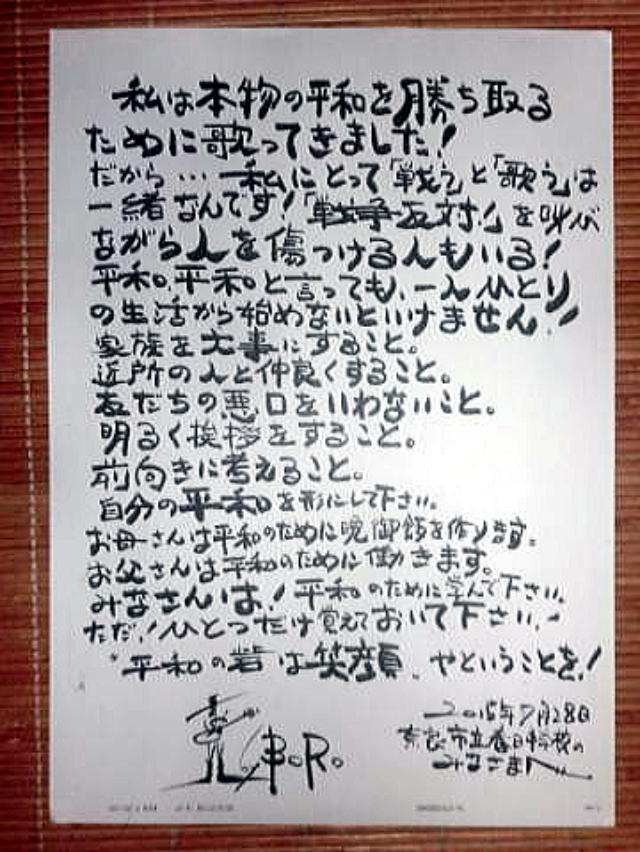 私は本物の平和を勝ち取る
ために歌ってきました!
だから… 私にとって「戦う」と「歌う」は
一緒なんです!「戦争反対!」を叫び
ながら人を傷つける人もいる!
平和。平和と言っても、一人ひとり
の生活から始めないといけません!
家族を大事にすること。
近所の人と仲良くすること。
友だちの悪口をいわないこと。
明るく挨拶をすること。
前向きに考えること。
自分の平和を形にして下さい。
お母さんは平和のために晩御飯を作ります。
お父さんは平和のために働きます。
みなさんは!平和のために学んで下さい。
ただ!ひとつだけ覚えておいて下さい!
"平和の砦は笑顔"やということを!
B.O.R.O.
2015年7月28日
奈良市立春日中学校の
みなさまへ